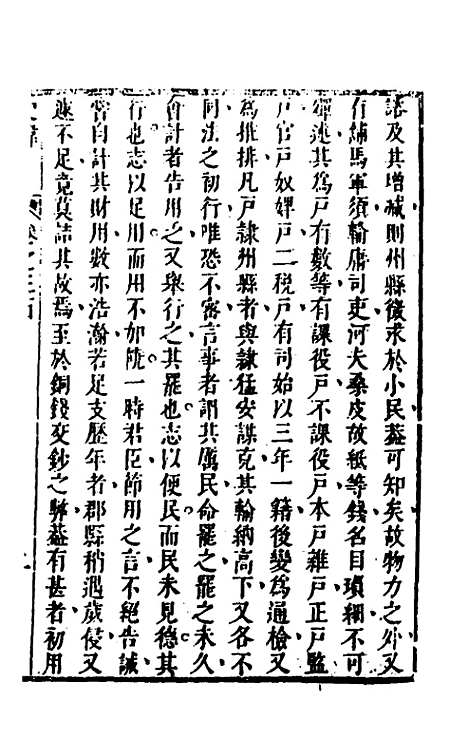 諮及其增減則州縣徵求於小民蓋可知矣故物力之外又
有鋪馬軍須輸庸司吏河夫桑皮故紙等錢名目瑣細不可
殫述其爲戶有數等有課役戶不課役戶本戶雜戶正戶監
戶官戶奴婢戶二稅戶有司始以三年一籍後變爲通檢又
爲推排凡戶隸州縣者與隸猛安謀克其輸納高下又各不
同法之初行唯恐不審言事者謂其厲民命罷之罷之未久
會計者告用之又舉行之其罷也志以便民而民未見德其
行也志以足用而用不加饒一時君臣節用之言不絕告誡
嘗自計其財用數亦浩瀚若足支歷年者郡縣稍遇歲侵又
遽不足竟莫詰其故焉至於銅錢交鈔之弊蓋有甚者初用